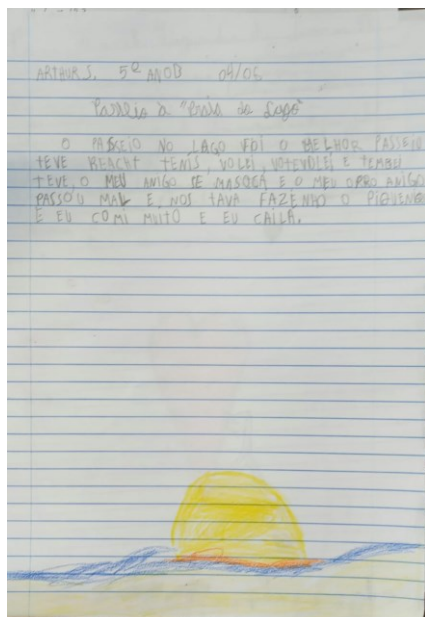 ARTHUR S. 5º ANO B 09/05
Passeio à "Praia do Lago"
O PASSEIO NO LAGO FOI O MELHOR PASSEIO
TEVE BEACHT TENIS, VOLEI, VOTEVOLEI E TEMBEI
TEVE, O MEU AMIGO SE MASOCA E O MEU OPRO AMIGO
PASSOU MAL E, NOS TAVA FAZENHO O PIQUENE
E EU COMI MUITO E EU CAILA.